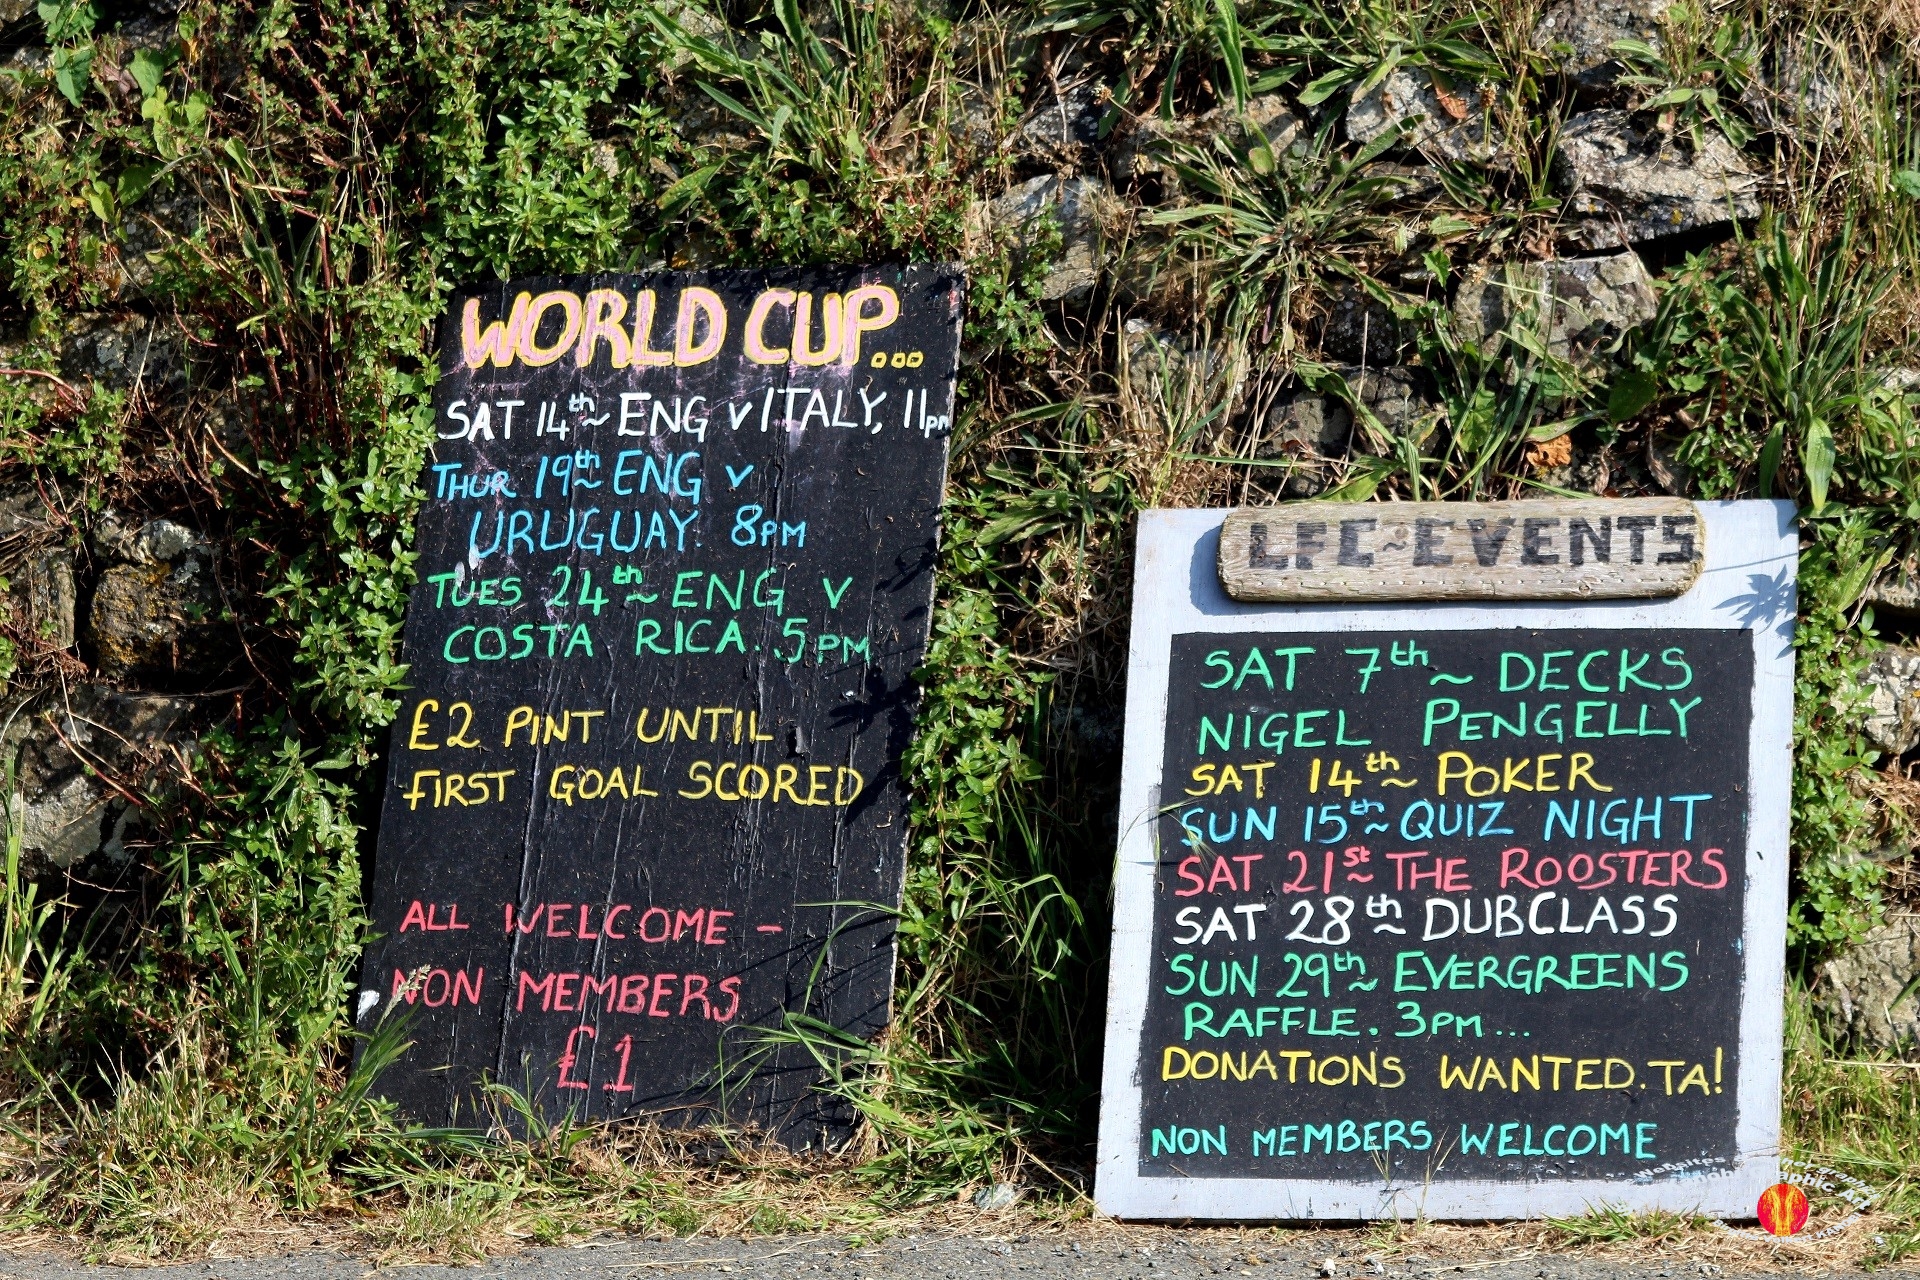 WORLD CUP...
SAT 14th~ ENG v ITALY, 11pm
THUR 19th~ ENG v
URUGUAY. 8PM
TUES 24th~ ENG v
COSTA RICA. 5PM
£2 PINT UNTIL
FIRST GOAL SCORED
ALL WELCOME -
NON MEMBERS
£1
LFC~EVENTS
SAT 7th~ DECKS
NIGEL PENGELLY
SAT 14th~ POKER
SUN 15th~ QUIZ NIGHT
SAT 21st~ THE ROOSTERS
SAT 28th~ DUBCLASS
SUN 29th~ EVERGREENS
RAFFLE. 3PM...
DONATIONS WANTED. TA!
NON MEMBERS WELCOME
Websites